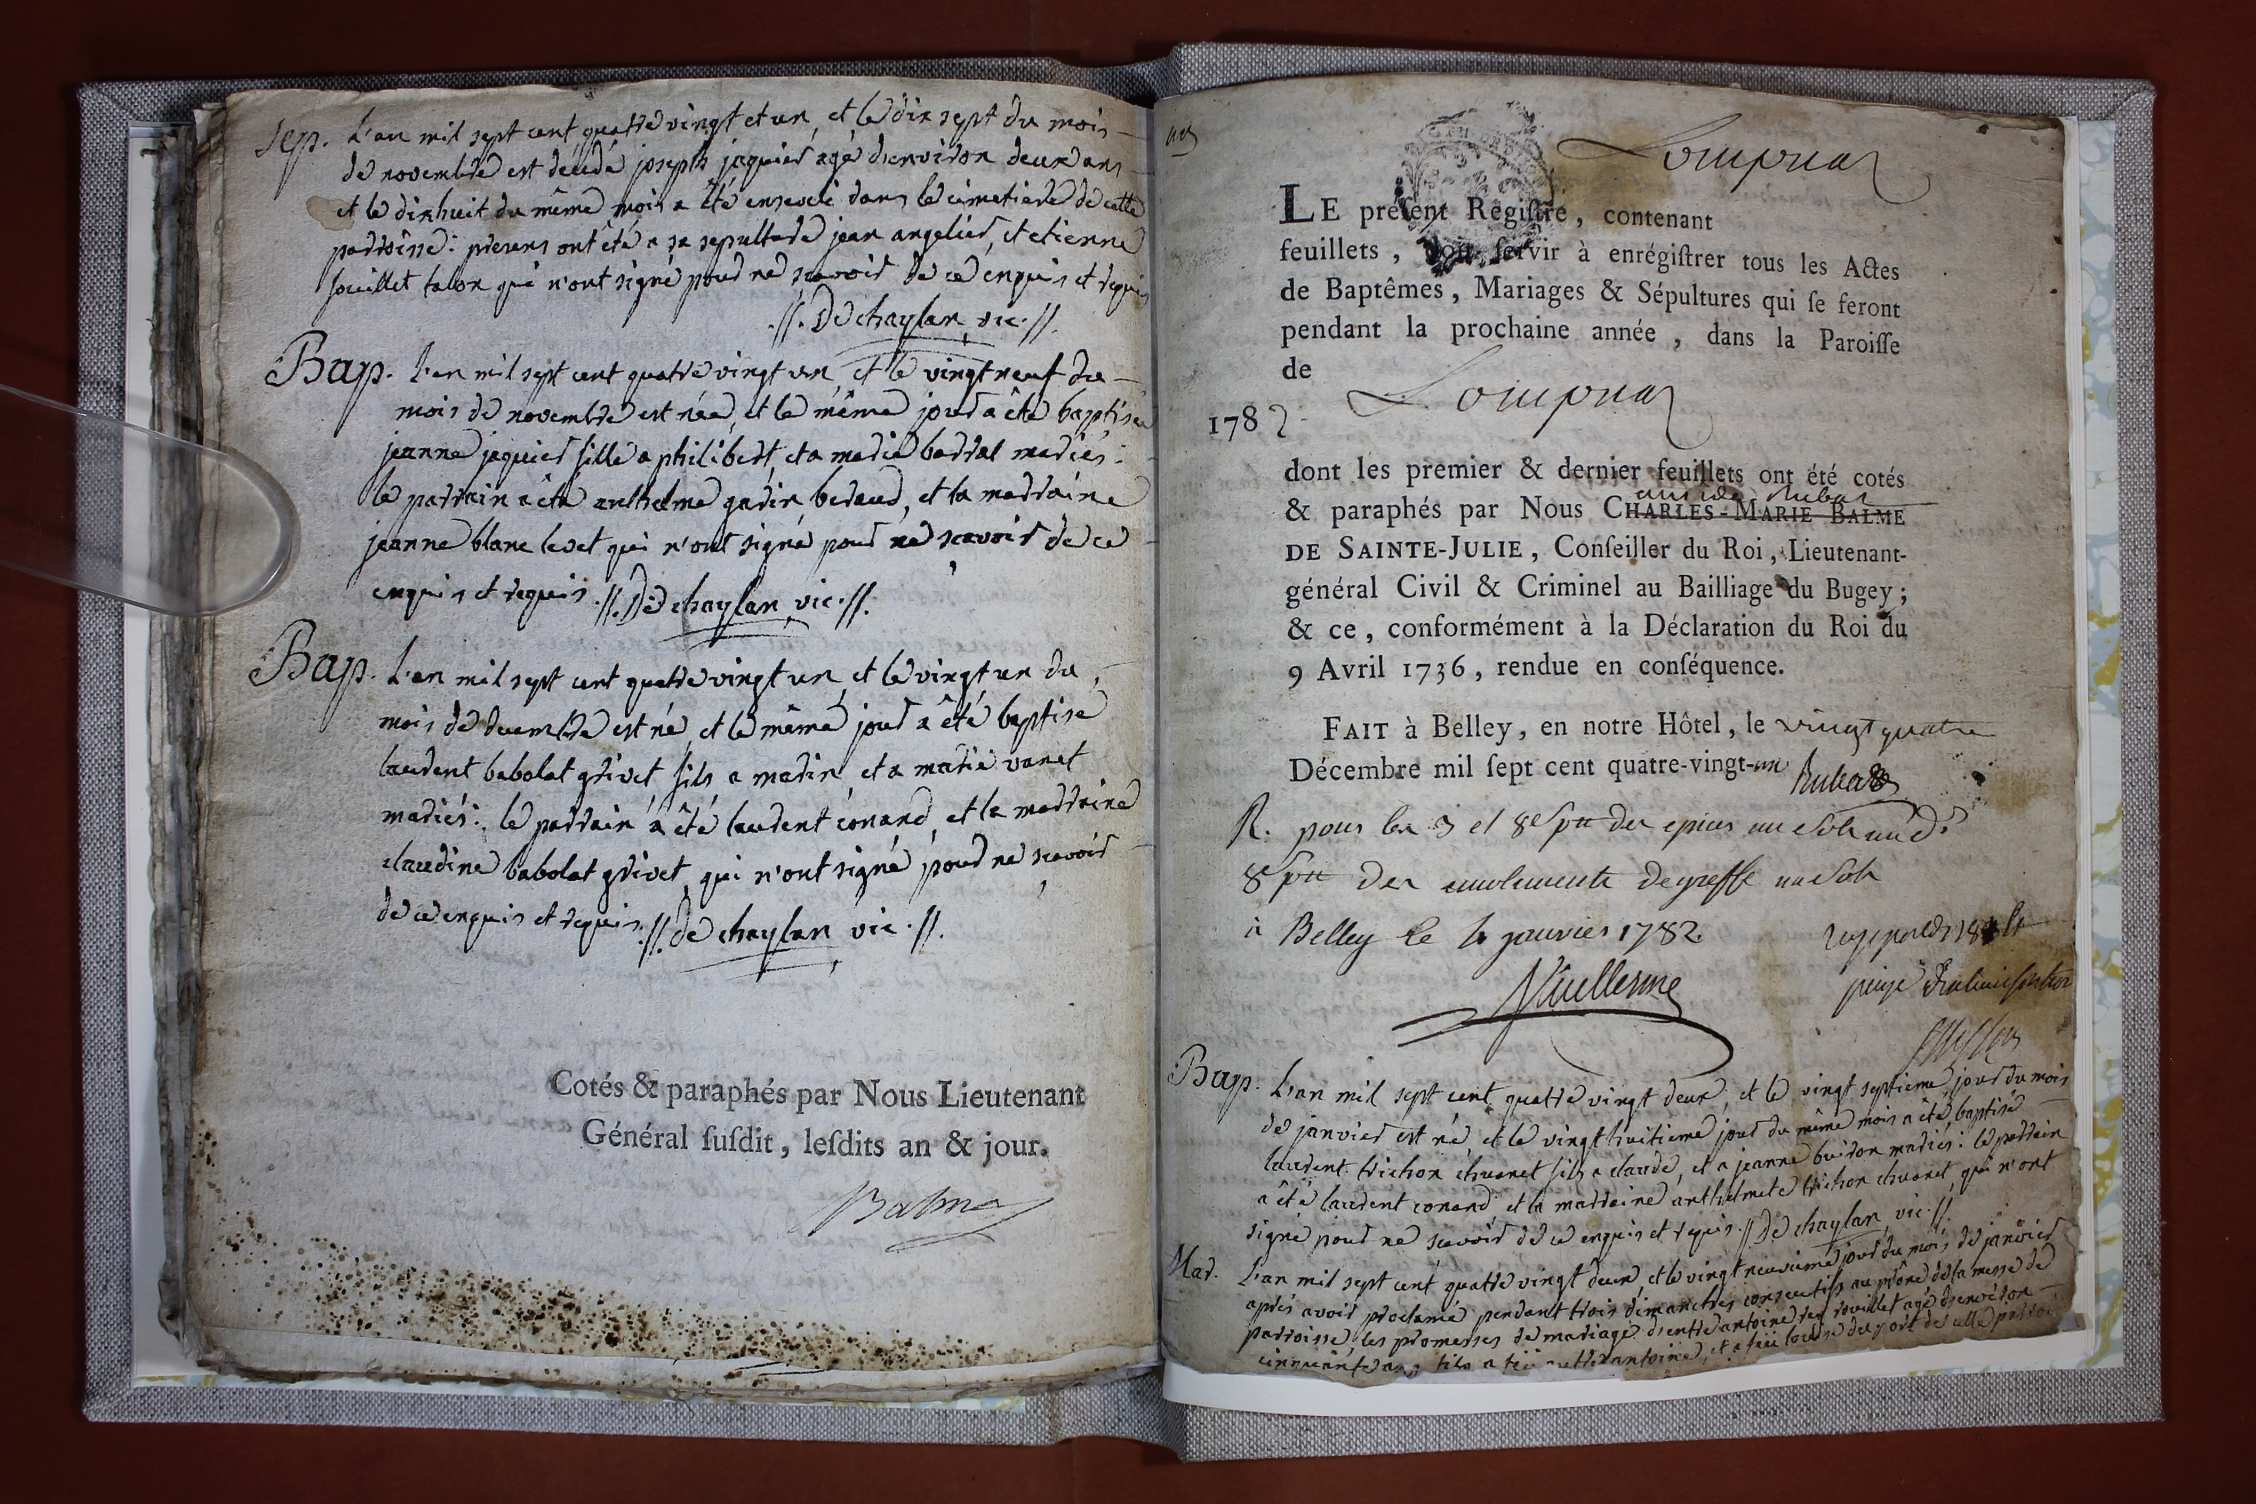 Sep. L'an mil sept cent quatre vingt et un, et le dix sept du mois
de novembre est décédé joseph jaquier agé d'environ deux ans
et le dixhuit du même mois a été enseveli dans le cimetiere de cette
parroisse: presens ont été a sa sepulture jean angelier, et etienne
souillet talon qui n'ont signé pour ne scavoir de ce enquis et requis
.//. De chaylan vic.//.
Bap. L'an mil sept cent quatre vingt un, et le vingt neuf du
mois de novembre est née, et le même jour a été baptisée
jeanne jaquier fille a philibert, et a marie barral mariés:
le parrain a été anthelme garin beraud, et la marraine
jeanne blanc levet qui n'ont signé pour ne scavoir de ce
enquis et requis .//. De chaylan, vic.//.
Bap. L'an mil sept cent quatre vingt un, et le vingt un du
mois de decembre est né, et le même jour a été baptisé
laurent babolat grivet fils a marin, et a marie vanet
mariés: le parrain a été laurent conand, et la marraine
claudine babolat grivet, qui n'ont signé pour ne scavoir
de ce enquis et requis .//. de chaylan, vic.//.
Cotés & paraphés par Nous Lieutenant
Général ſuſdit, leſdits an & jour.
Balme
Lompnas
LE préſent Regiſtre, contenant
feuillets, doit ſervir à enrégiſtrer tous les Actes
de Baptêmes, Mariages & Sépultures qui ſe feront
pendant la prochaine année, dans la Paroiſſe
de Lompnas
1782
dont les premier & dernier feuillets ont été cotés
& paraphés par Nous CHARLES-MARIE BALME
DE SAINTE-JULIE, Conſeiller du Roi, Lieutenant-
général Civil & Criminel au Bailliage du Bugey;
& ce, conformément à la Déclaration du Roi du
9 Avril 1736, rendue en conſéquence.
FAIT à Belley, en notre Hôtel, le vingt quatre
Décembre mil ſept cent quatre-vingt-un
R. pour les 3 et 8e pr des epices un sols
8e pr des emoluments de greffe un sols
à Belley le janvier 1782.
Vuillerme
Bap. L'an mil sept cent quatre vingt deux, et le vingt septieme jour du mois
de janvier est né, et le vingt huitieme jour du même mois a été baptisé
laurent trichon chuanet fils a claude, et a jeanne buiron mariés: le parrain
a été laurent conand et la marraine anthelmete trichon chuanet, qui n'ont
signé pour ne scavoir de ce enquis et requis .// De chaylan, vic.//.
Mar. L'an mil sept cent quatre vingt deux, et le vingt neuvieme jour du mois de janvier
aprés avoir proclamé pendant trois dimanches consecutifs au prône de la messe de
parroisse les promesses de mariage d'entre antoine rouillet agé d'environ
cinquante ans, fils a feu antoine, et a feue du port de